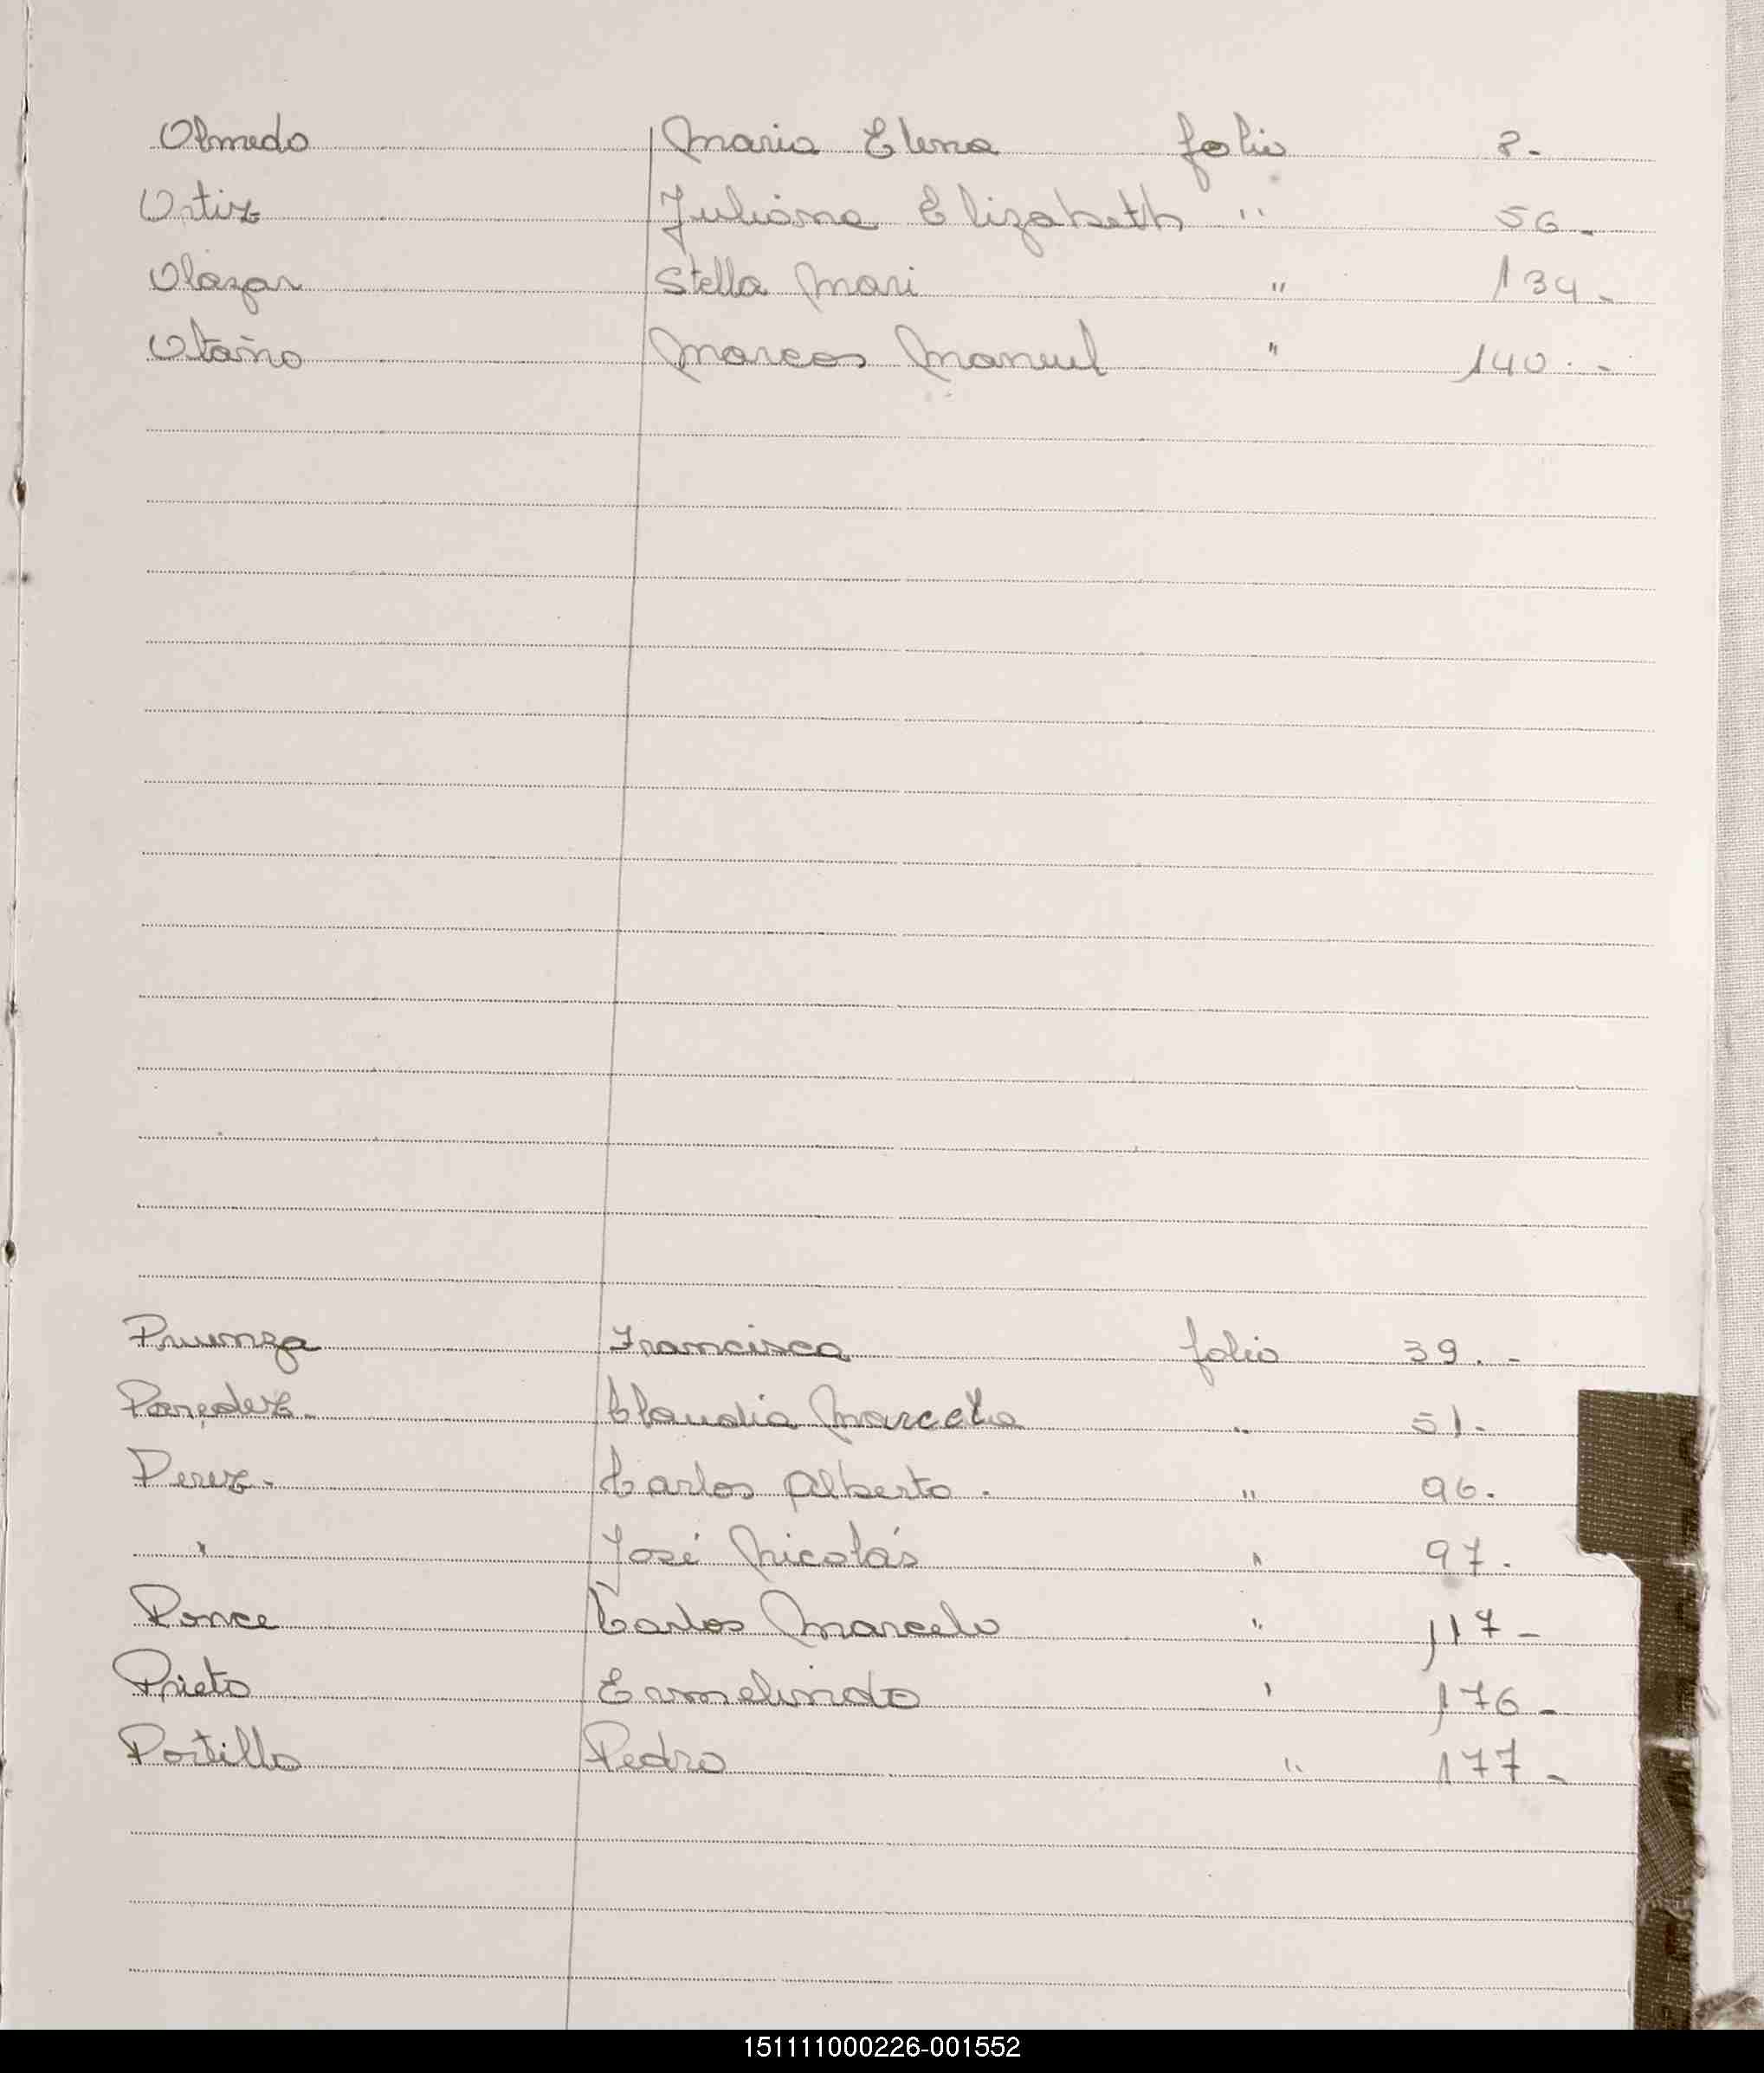 Olmedo Maria Elena folio 8.-
Ortiz Juliana Elizabeth " 56.-
Olazar Stella Mari " 134.-
Otaño Marcos Manuel " 140.-
Francisca folio 39.-
Paredez.- Claudia Marcela " 51.-
Perez.- Carlos Alberto. " 96.
" José Nicolás " 97.
Ponce Carlos Marcelo " 117-
Prieto Ermelindo " 176-
Portillo Pedro " 177-
151111000226-001552